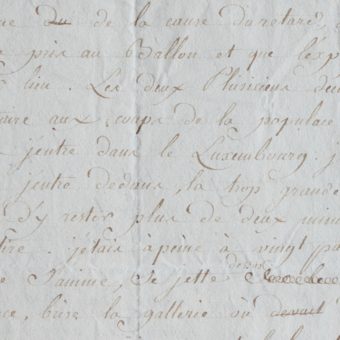 de la cause du retard,
pris au Ballon et que l'exp
lieu. Les deux Phisiciens
aux corps de la populace
j'entre dans le Luxembourg. j
jentre dedans, la trop grande
d'y rester plus de deux minu
tire. j'etais apeine à vingt pa
s'anime, se jette dessus
ce, brise la gallerie où devait